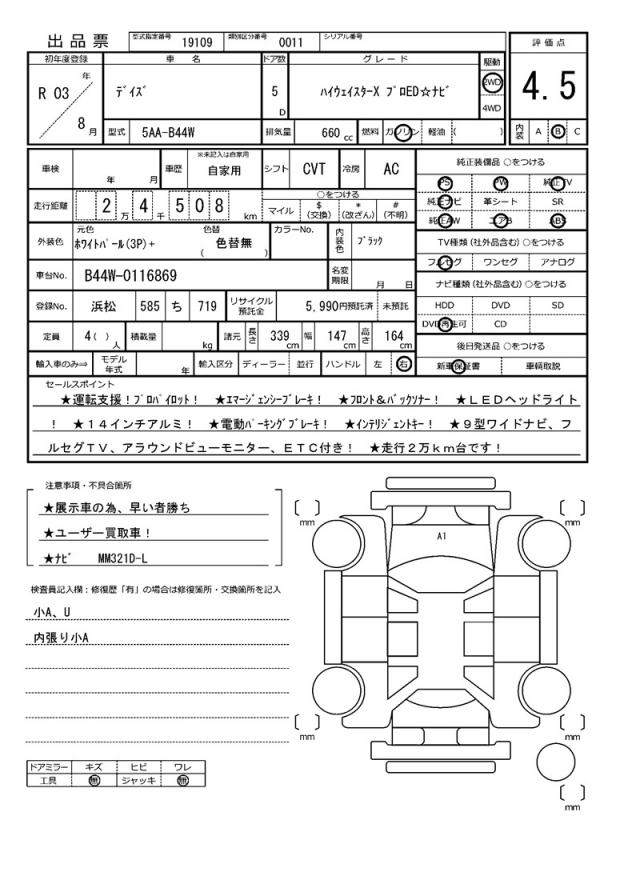 出品票 型式指定番号 19109 類別区分番号 0011 シリアル番号
評価点
4.5
内装 A B C
初年度登録 車名 ドア数 グレード 駆動
R 03 年 8 月 デイズ 5 D ハイウェイスターX プロED☆ナビ 2WD 4WD
型式 5AA-B44W 排気量 660 cc 燃料 ガソリン 軽油 ( )
車検 年 月 車歴 ※未記入は自家用 自家用 シフト CVT 冷房 AC
走行距離 2 万 4 千 5 0 8 km ○をつける マイル $ (交換) * (改ざん) # (不明)
外装色 元色 ホワイトパール(3P)+ 色替 ( 色替無 ) カラーNo. 内装色 ブラック
車台No. B44W-0116869 名変期限 月 日
登録No. 浜松 585 ち 719 リサイクル預託金 5,990円預託済 未預託
定員 4( )人 積載量 kg 諸元 長さ 339 cm 幅 147 cm 高さ 164 cm
輸入車のみ⇒ モデル年式 年 輸入区分 ディーラー 並行 ハンドル 左 右
純正装備品 ○をつける
PS PW 純正TV
純正ナビ 革シート SR
純正AW エアB ABS
TV種類(社外品含む)○をつける
フルセグ ワンセグ アナログ
ナビ種類(社外品含む)○をつける
HDD DVD SD
DVD再生可 CD
後日発送品 ○をつける
新車保証書 車輌取説
セールスポイント
★運転支援!プロパイロット! ★エマージェンシーブレーキ! ★フロント&バックソナー! ★LEDヘッドライト
! ★14インチアルミ! ★電動パーキングブレーキ! ★インテリジェントキー! ★9型ワイドナビ、フ
ルセグTV、アラウンドビューモニター、ETC付き! ★走行2万km台です!
注意事項・不具合箇所
★展示車の為、早い者勝ち
★ユーザー買取車!
★ナビ MM321D-L
検査員記入欄:修復歴「有」の場合は修復箇所・交換箇所を記入
小A、U
内張り小A
ドアミラー キズ ヒビ ワレ
工具 無 ジャッキ 無
[ ] mm
[ ] mm
A1
[ ] mm
[ ] mm
[ ] mm